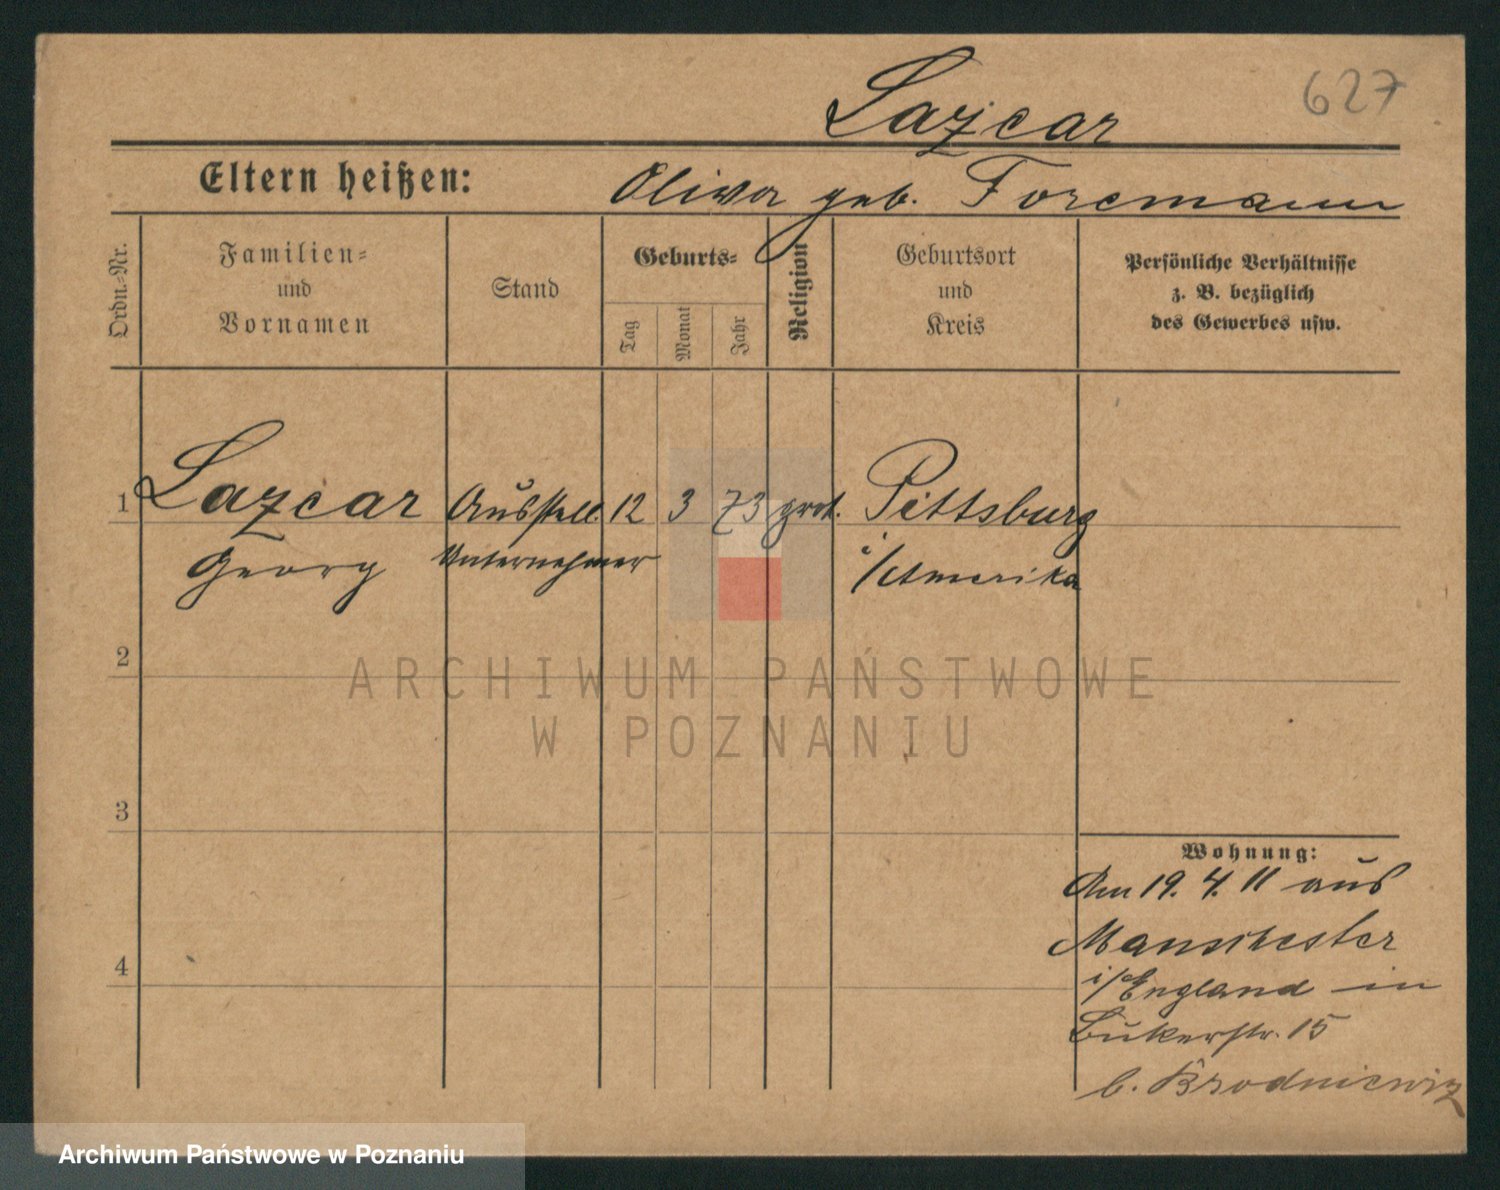 627
Lazcar
Eltern heißen: Oliva geb. Foremann
Ordn.-Nr.
Familien-
und
Vornamen
Stand
Geburts-
Tag
Monat
Jahr
Religion
Geburtsort
und
Kreis
Persönliche Verhältnisse
z. B. bezüglich
des Gewerbes usw.
1 Lazcar Ausstell. 12 3 73 prot. Pittsburg
Georg Unternehmer i/Amerika
2
3
4
Wohnung:
Am 19. 4. 11 aus
Manschester
i/England in
Bukerstr. 15
b. Brodniewiz
ARCHIWUM PAŃSTWOWE
W POZNANIU
Archiwum Państwowe w Poznaniu